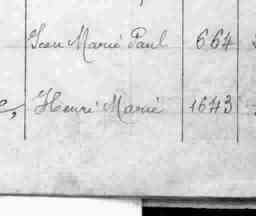 Jean Marié Paul 664
Henri Marié 1643